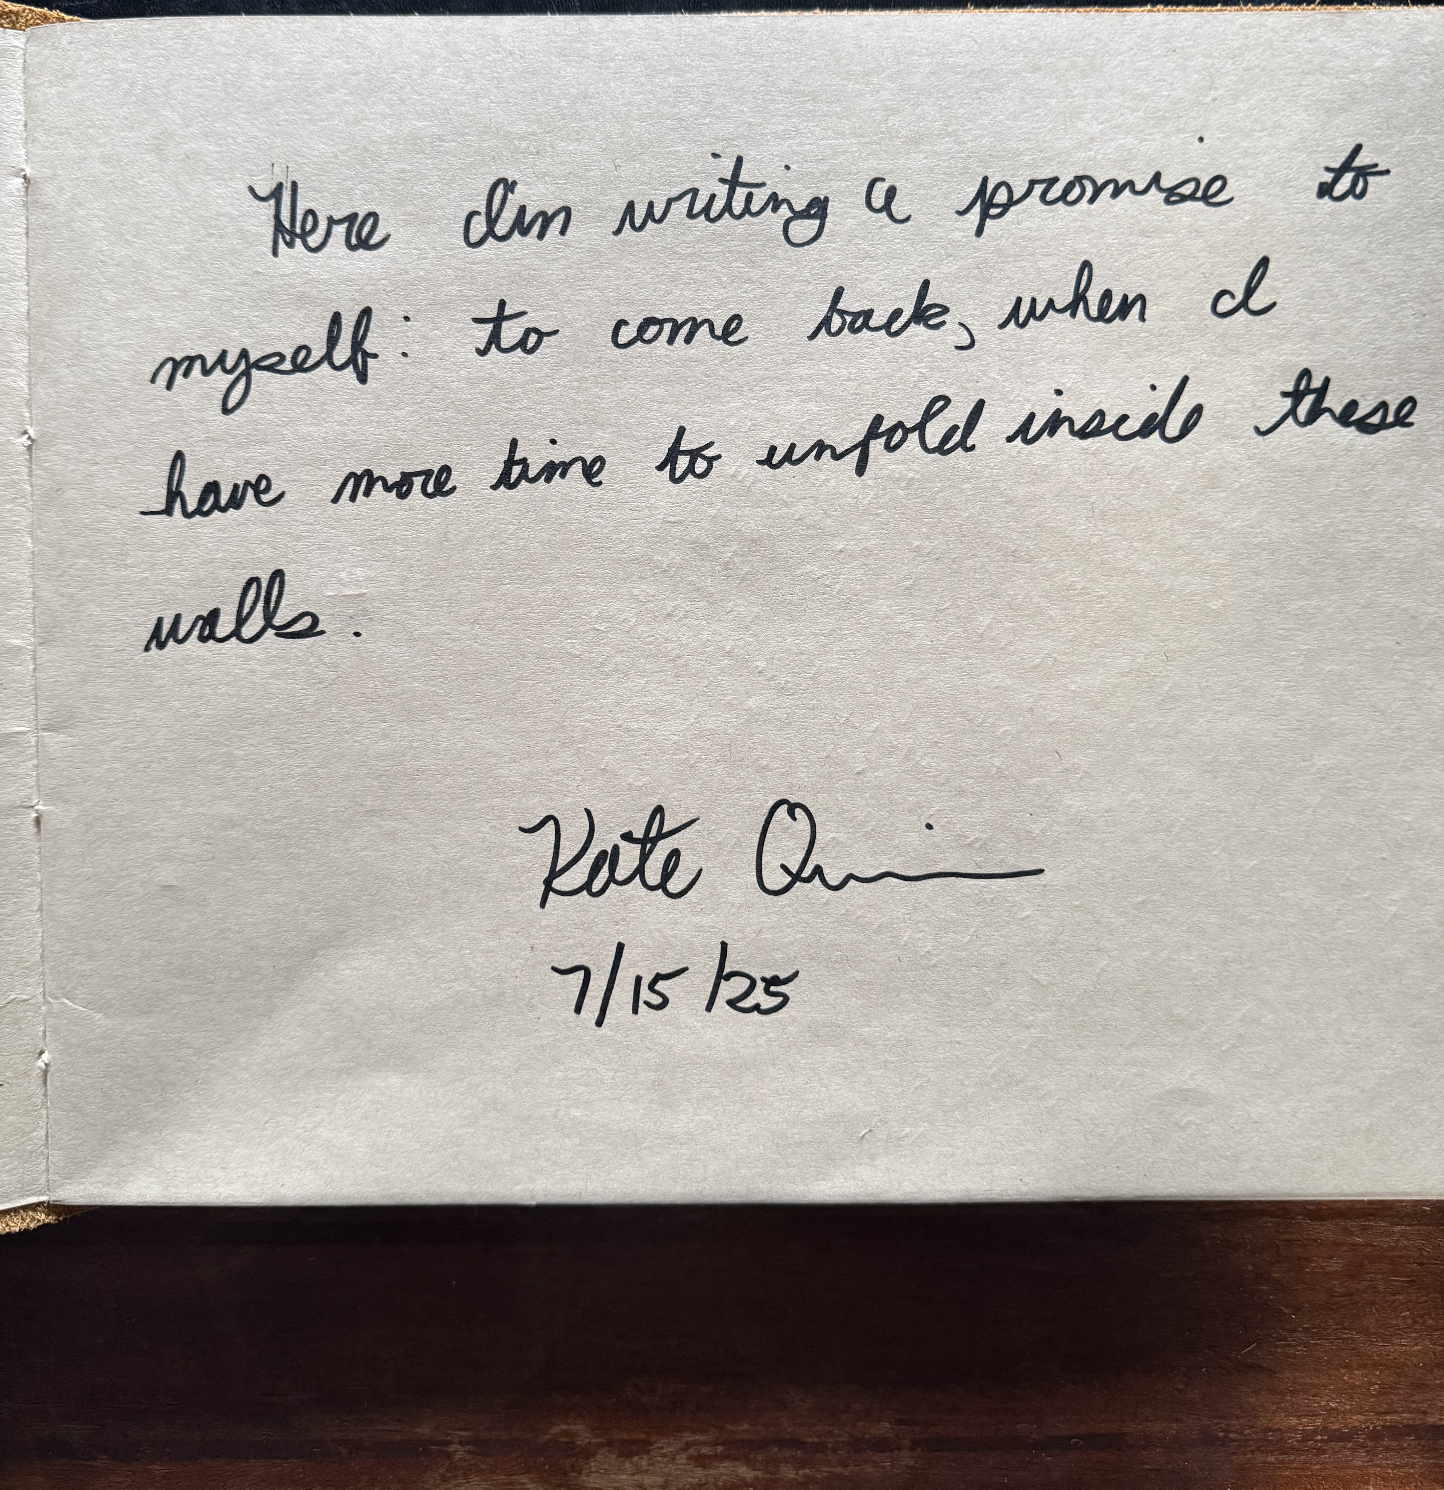 Here I'm writing a promise to
myself: to come back, when I
have more time to unfold inside these
walls.
Kate Quinn
7/15/25